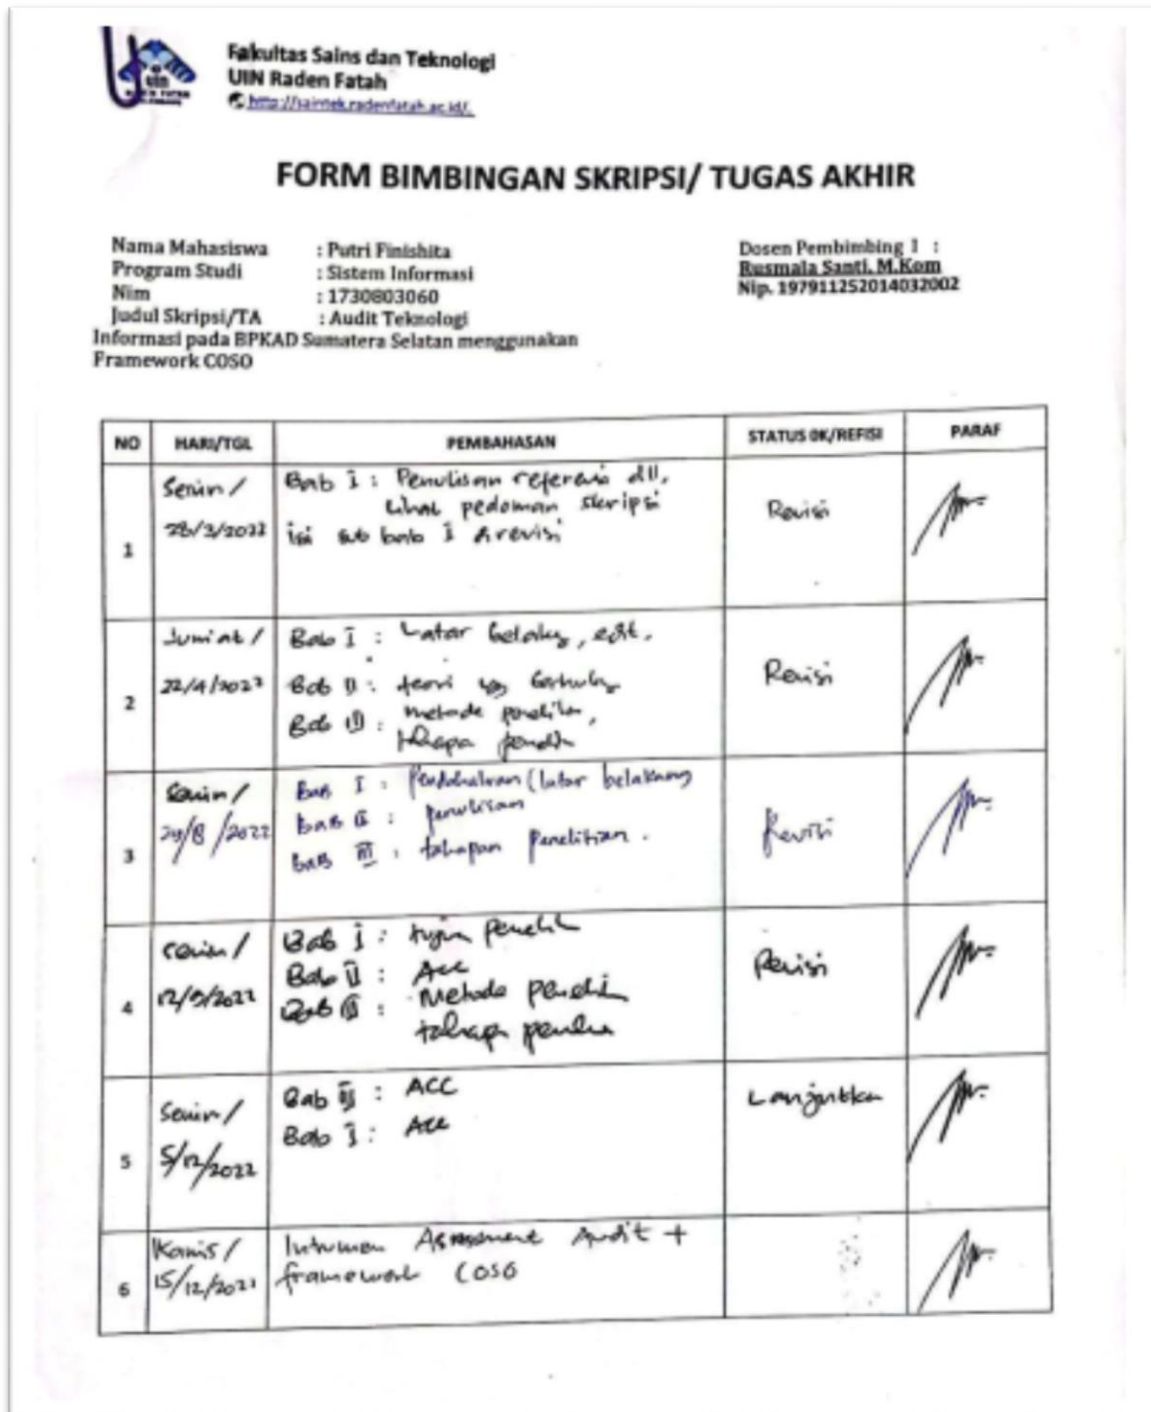 uin
Fakultas Sains dan Teknologi
UIN Raden Fatah
http://saintek.radenfatah.ac.id/.
FORM BIMBINGAN SKRIPSI/ TUGAS AKHIR
Nama Mahasiswa : Putri Finishita
Program Studi : Sistem Informasi
Nim : 1730803060
Judul Skripsi/TA : Audit Teknologi
Informasi pada BPKAD Sumatera Selatan menggunakan
Framework COSO
Dosen Pembimbing 1 :
Rusmala Santi, M.Kom
Nip. 197911252014032002
NO HARI/TGL PEMBAHASAN STATUS OK/REFISI PARAF
1
Senin /
28/3/2022
Bab I : Penulisan referensi dll.
Lihat pedoman skripsi
isi sub bab I revisi
Revisi
2
Jum'at /
22/4/2022
Bab I : Latar belakg, edit.
Bab II : teori yg
Bab III : metode
Revisi
3
Senin /
29/8/2022
Bab I : Pendahuluan (latar belakang
BAB II : penulisan
BAB III : tahapan Penelitian.
Revisi
4
Senin /
12/9/2022
Bab I : tujuan
Bab II : Acc
Bab III : Metode
Revisi
5
Senin /
5/12/2022
Bab III : ACC
Bab I : Acc
Lanjutkan
6
Kamis /
15/12/2022
Intrumen Assessment Audit +
framework COSO